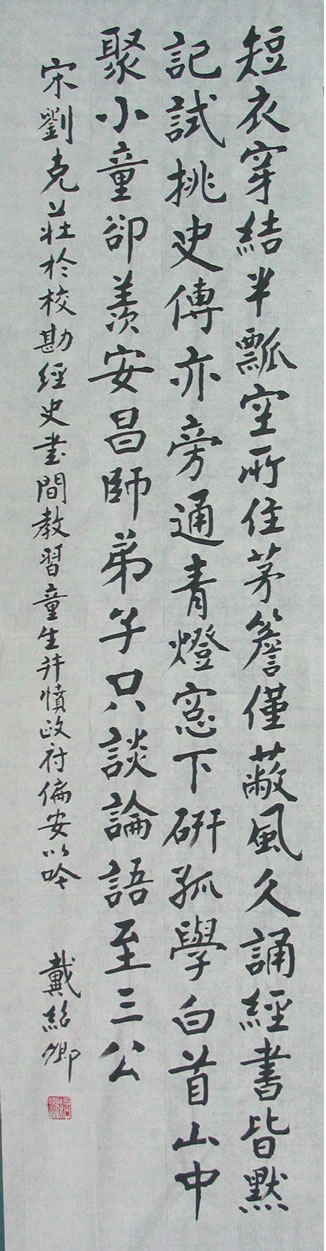 短衣穿結半瓢空所住茅簷僅蔽風久誦經書皆默
記試挑史傳亦旁通青燈窓下研孤學白首山中
聚小童卻羨安昌師弟子只談論語至三公
宋劉克莊於校勘經史書間教習童生并憤政府偏安以吟
戴紹卿